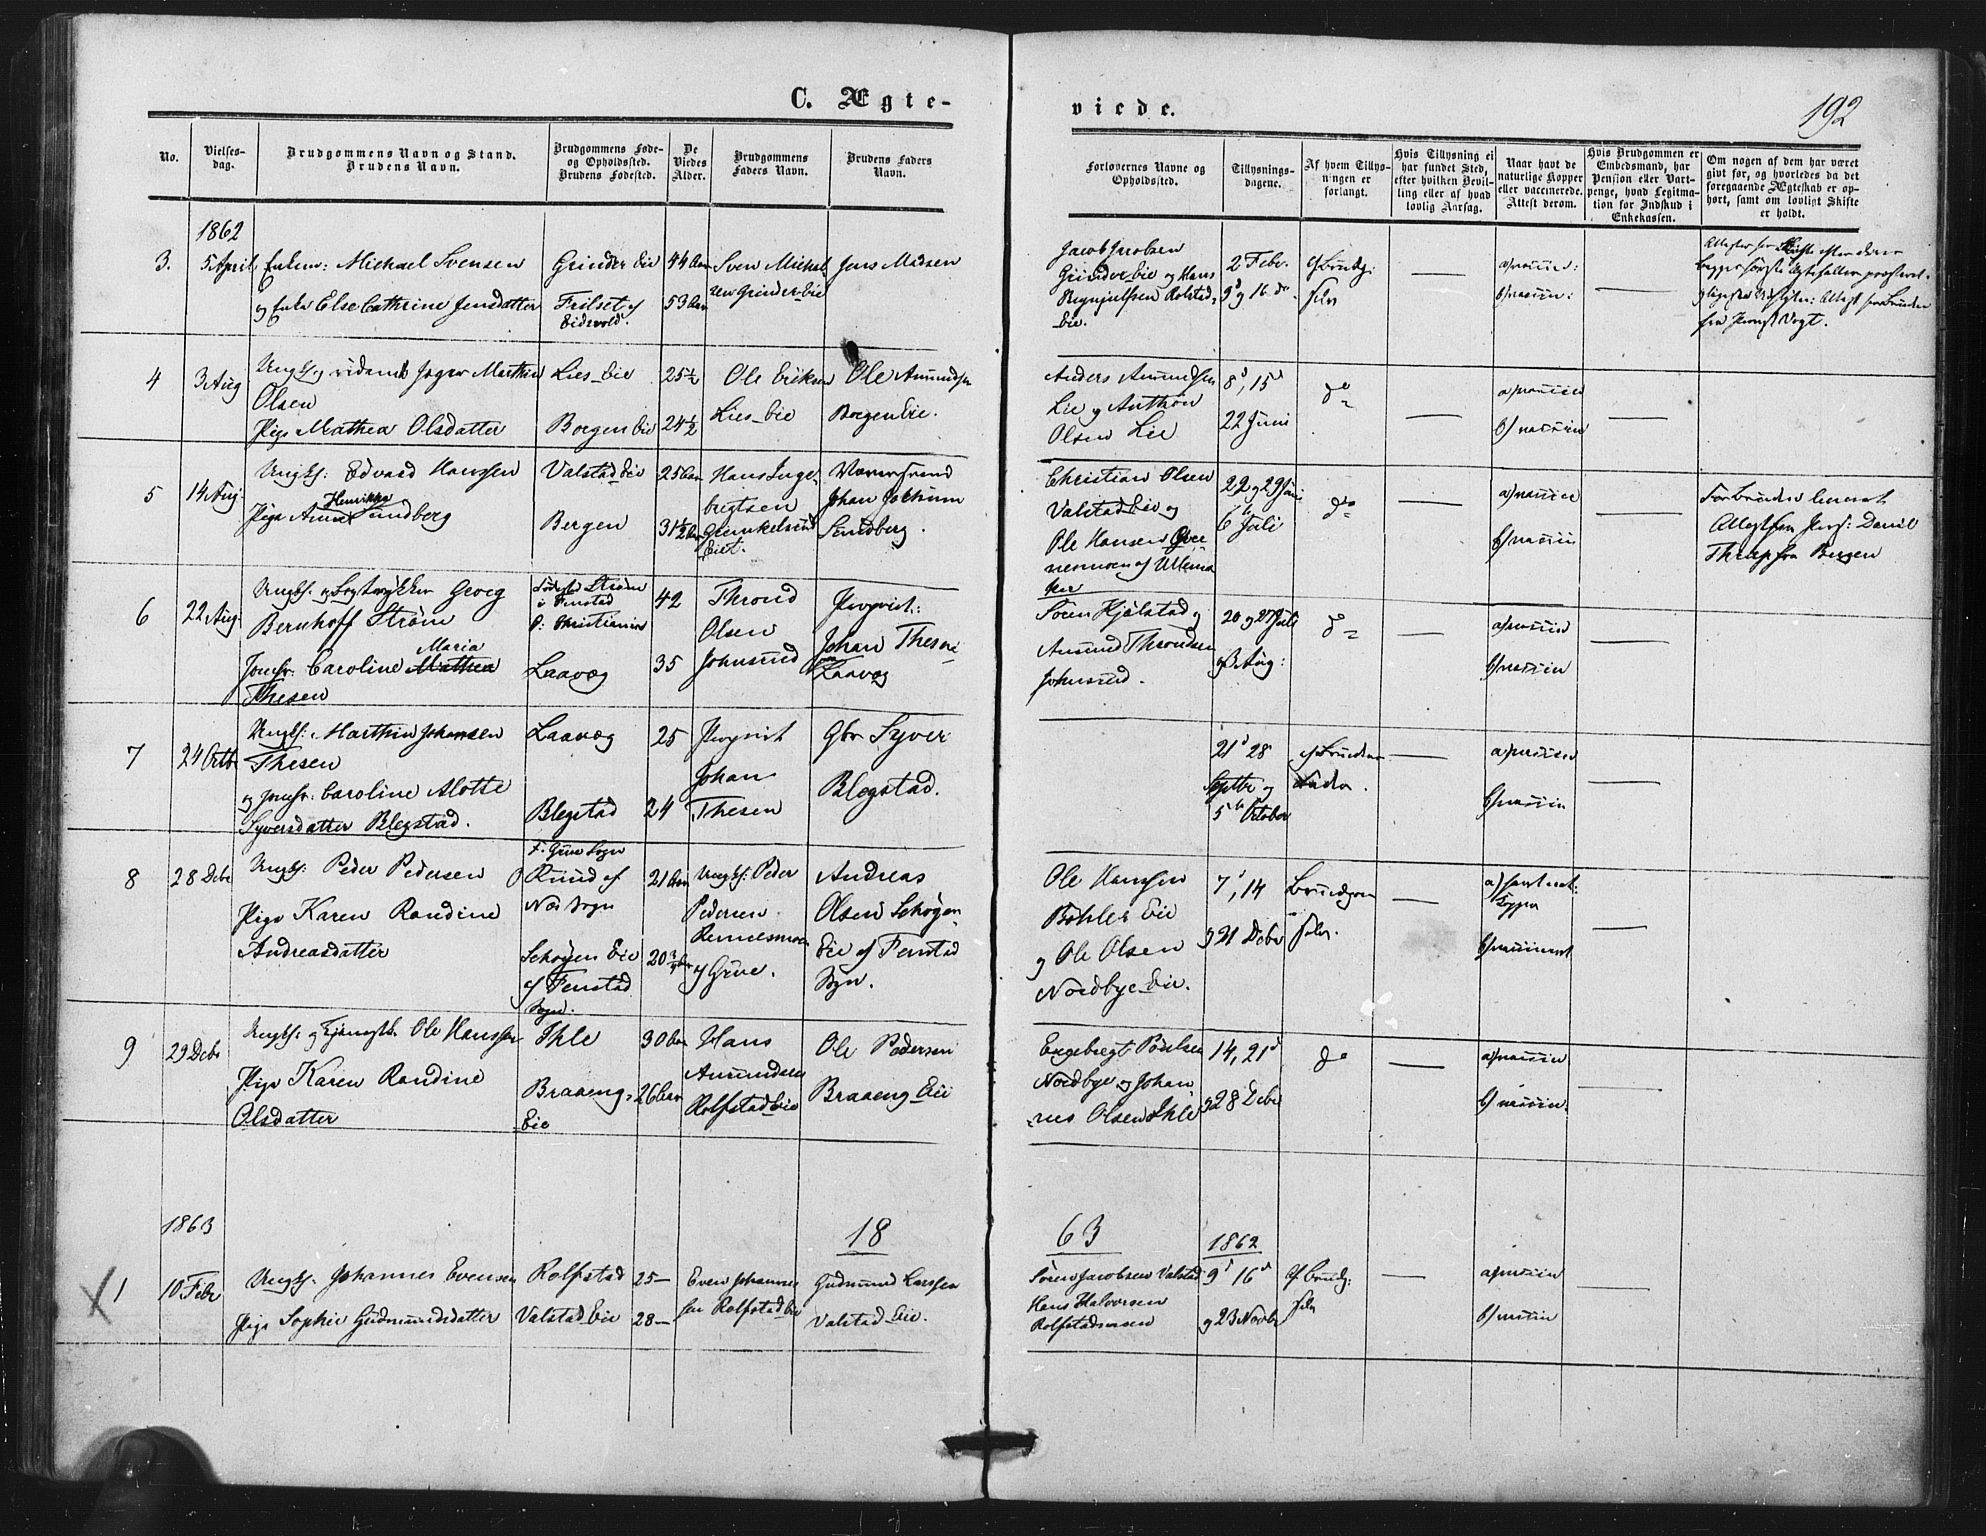 C. Ægte-
viede.
192
No.
Vielses-
dag.
Brudgommens Navn og Stand.
Brudens Navn.
Brudgommens Føde-
og Opholdssted.
Brudens Fødested.
De
Viedes
Alder.
Brudgommens
Faders Navn.
Brudens Faders
Navn.
Forlovernes Navne og
Opholdssted.
Tillysnings-
dagene.
Af hvem Tillys-
ningen er
forlangt.
Hvis Tillysning ei
har fundet Sted,
efter hvilken Bevil-
ling eller af hvad
lovlig Aarsag.
Naar havt de
naturlige Kopper
eller vaccinerede.
Attest derom.
Hvis Brudgommen er
Embedsmand, har
Pension eller Vart-
penge, hvad Legitma-
tion for Indskud i
Enkekassen.
Om nogen af dem har været
givt før, og hvorledes da det
foregaaende Ægteskab er op-
hørt, samt om lovligt Skifte
er holdt.
1862
3.
5 April
Enkem: Michael Svensen
og Enke Else Cathrine Jensdatter
Grinder Eie
Frilset af
Eidsvold.
44 Aar
53 Aar
Sven Michel-
sen Grinder Eie
Jens Madsen
Jacob Jacobsen
Grinder Eie og Hans
Rolstad-
Eie.
2 Febr.
9d og 16 do.
af Brudg:
selv
a/ vaccin:
b/ vaccin:
4
3 Aug
Ungk. og Jæger Marthin
Olsen
Pige Mathea Olsdatter
Lies Eie
Borgen Eie
25½
24½
Ole Eriksen
Lies Eie
Ole Amundsen
Borgen Eie.
Anders Amundsen
Lie og Anthon
Olsen Lie
8d, 15d
22 Juni
do
a/ vaccin
b/ vaccin
5
14 Aug.
Ungk: Edvard Hanssen
Henrikke
Pige Anne Sundberg
Valstad Eie
Bergen
25 Aar
31½ Aar
Hans Inge-
bregtsen
Eiet.
Johan Jochum
Sundberg.
Christian Olsen
Valstad Eie og
Ole Hansen
af Ullensa-
ker
22 og 29 Juni
6te Juli
do
a/ vaccin
b/ vaccin
Attest fra Prof: Daniel
Thrap fra Bergen
6
22 Aug.
Ungk. og Georg
Bernhoff Strøm
Maria
Jomfr: Caroline Mathea
Thesen
Født Strøm
i Fenstad
O: Christiania
Laavæg
42
35
Thrond
Olsen
Johnsrud
Propriet:
Johan Thesen
Laavæg
Søren Hjelstad og
Amund Throndsen
Johnsrud.
20 og 27 Juli
og 3 Aug:
do
a/ vaccin
b/ vaccin
7
24 Octb
Ungk: Marthin Johansen
Thesen
og Jomfr. Caroline Alotte
Syversdatter Blegstad.
Laavæg
Blegstad
25
24
Propriet
Johan
Thesen
Gbr Syver
Blegstad.
21d 28
Septbr og
5te October
af Brudens
Fader.
a/ vaccin
b/ vaccin
8
28 Debr
Ungk: Peder Pedersen
Pige Karen Randine
Andreasdatter
F. Grue Sogn
O Ruud af
Næs Sogn
Schøyen Eie
af Fenstad
Sogn.
21 Aar
20¾ Aar
Ungk: Peder
Pedersen
af Grue.
Andreas
Olsen Schøyen
Eie af Fenstad
Sogn.
Ole Hansen
Bøhler Eie
og Ole Olsen
Nordbye Eie.
7d, 14
og 21 Debr
Brudgom
selv.
b/ vaccineret
9
29 Debr
Ungk: og Ole Hanssen
Pige Karen Randine
Olsdatter
Ihle
Braaeng-
Eie
30 Aar
26 Aar
Hans
Amundsen
Rolfstad Eie
Ole Pedersen
Braaeng Eie
Engebregt Poulsen
Nordbye og Johan-
nes Olsen Ihle
14, 21d
og 28 Debr
do
a/ vaccin
b/ vaccin
1863
18
63
1862
1
10 Febr
Ungk. Johannes Evensen
Pige Sophie Gudmundsdatter
Rolfstad
Valstad Eie
25
28
Even Johannes-
sen Rolfstad Eie
Gudmund Larssen
Valstad Eie.
Søren Jacobsen Valstad
Hans Halvorsen
9d 16d
og 23 Novbr
af Brudg:
selv
a/ vaccin
b/ vaccin